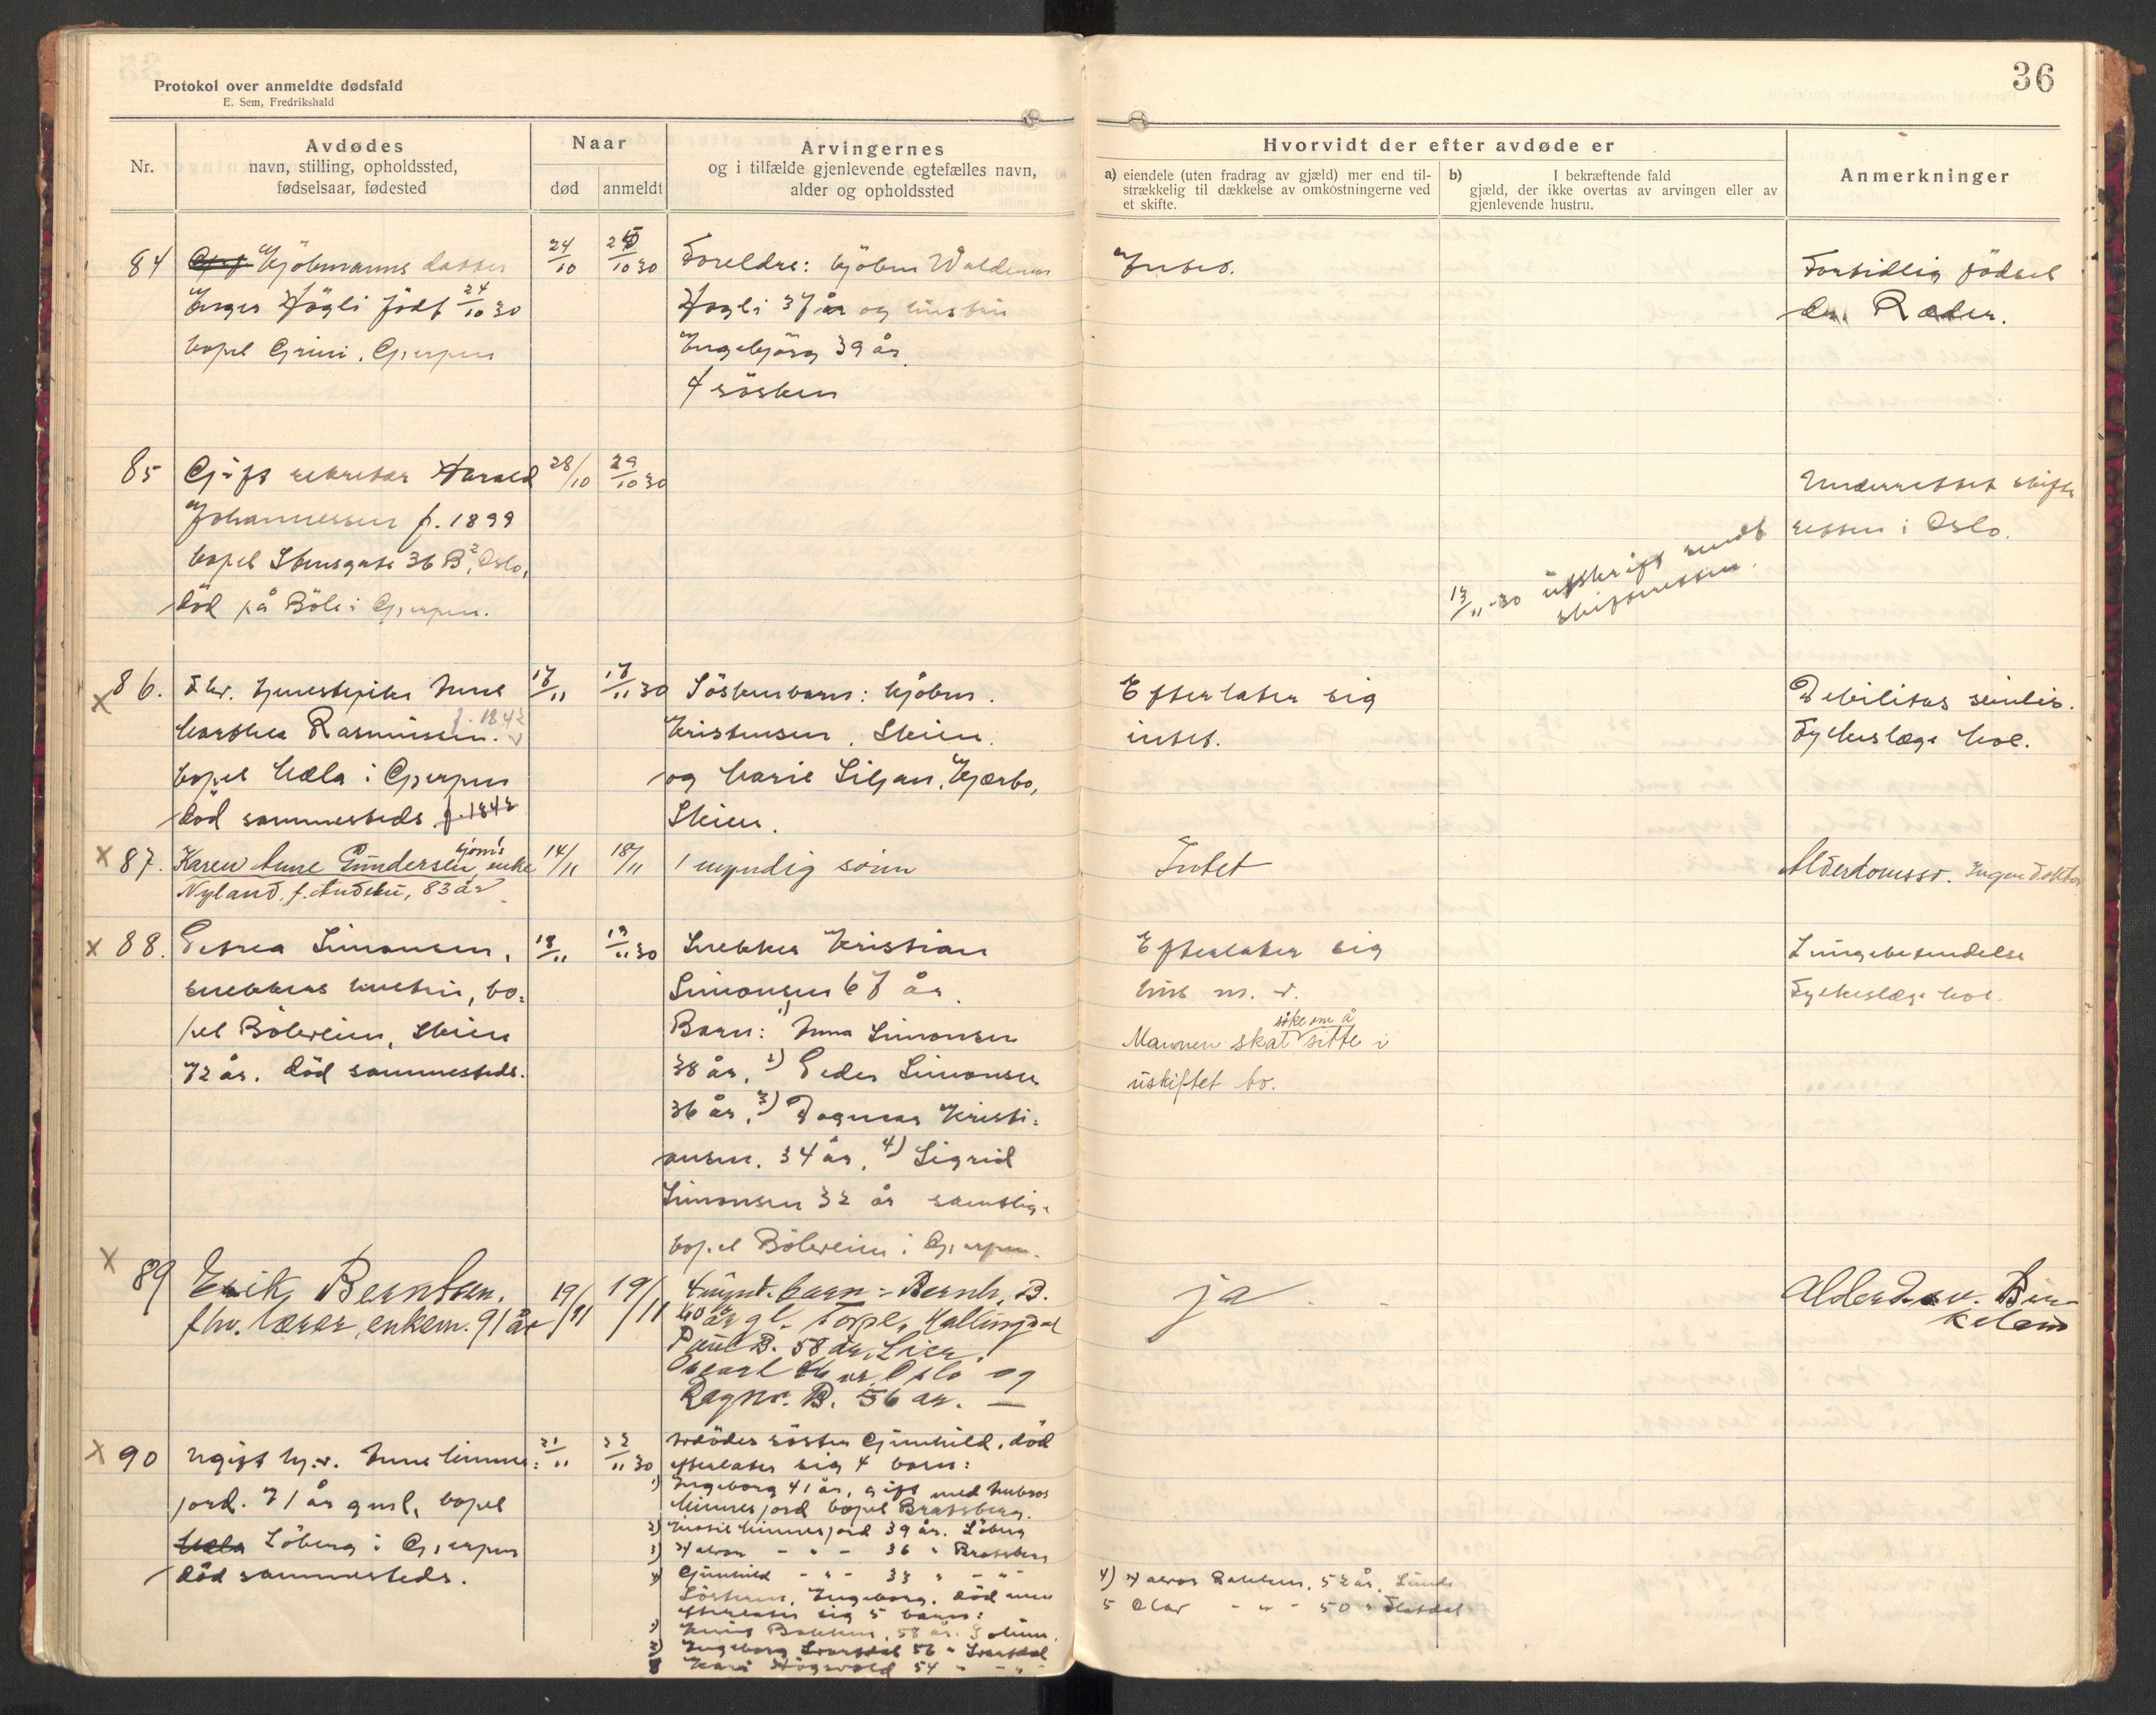 Protokol over anmeldte dødsfald
E. Sem, Fredrikshald
36
Nr.
Avdødes
navn, stilling, opholdssted,
fødselsaar, fødested
Naar
død
anmeldt
Arvingernes
og i tilfælde gjenlevende egtefælles navn,
alder og opholdssted
Hvorvidt der efter avdøde er
a) eiendele (uten fradrag av gjæld) mer end til-
strækkelig til dækkelse av omkostningerne ved
et skifte.
b) I bekræftende fald
gjæld, der ikke overtas av arvingen eller av
gjenlevende hustru.
Anmerkninger
84
Kjöbmanns datter
Inger Högli födt 24/10 30
bopel Grini, Gjerpen
24/10
10 30
Foreldre: kjöbm Waldemar
Högli 37 år og hustru
Ingebjörg 39 år
4 sösken
Intet.
Fortidlig födsel
dr. Ræder.
85
Gift sekretær Harald
Johannessen f. 1899
bopel Stensgate 36 B², Oslo,
död på Böle i Gjerpen.
28/10
29/10 30
13/11-30 utskrift sendt
skifteretten.
Underrettet skifte
retten i Oslo.
x 86.
Fhv. tjenestepike Anne
Marthea Rasmussen. f. 1842
bopel Mæla i Gjerpen
död sammesteds. f. 1842
17/11
17/11 30
Söskenbarn: kjöbm.
Kristensen, Skien.
og Marie Liljan, Kjærbo,
Skien.
Efterlater sig
intet.
Debilitas senilis.
Fylkeslæge Moe.
x 87.
Karen Anne Gundersen, sjøm's enke
Nyland, f. 83 år
14/11
18/11
1 myndig sönn
Intet
Alderdomssv. Ingen doktor
x 88.
Petrea Simonsen,
snekkers hustru, bo-
pel Böleveien, Skien
72 år. död sammesteds.
18/11
19/11 30
Snekker Kristian
Simonsen 67 år.
Barn: 1) Anna Simonsen
38 år, 2) Peder Simonsen
36 år, 3) Dagmar Kristi-
ansen. 34 år, 4) Sigrid
Simonsen 32 år samtlige
bopel Böleveien i Gjerpen.
Efterlater sig
hus m. v.
Mannen skal søke om å sitte i
uskiftet bo.
Lungebetendelse
Fylkeslæge Moe.
x 89
Erik Berntsen.
fhv. lærer, enkem. 91 år
19/11
19/11
4 mynd. barn: Bernh. B.
60 år gl. Torpe, Hallingdal
Paul B. 58 år, Lier,
år, Oslo og
Ragnv. B. 56 år. —
ja
Alderd. sv. Bir-
keland
x 90
Ugift hj.v. Anne Minne-
jord. 71 år gml. bopel
Mæla Löberg i Gjerpen
död sammesteds.
21/11
22/11 30
Avdödes söster Gunhild, död
efterlater sig 4 barn:
1) Ingeborg 41 år, gift med Ambros
Minnejord bopel Bratsberg.
2) Kittil Minnejord 39 år. Löberg
3) Halvor - " - 36 " Bratsberg
4) Gunhild - " - 33 " - " -
Sösteren, Ingeborg, död men
efterlater sig 5 barn:
1) Bakken, 58 år.
2) Ingeborg Svartdal 56 " Svartdal
3 Kari 54 " - " -
4) Halvor Bakken, 52 år. Lunde
5 Olav - " - 50 " Flatdal